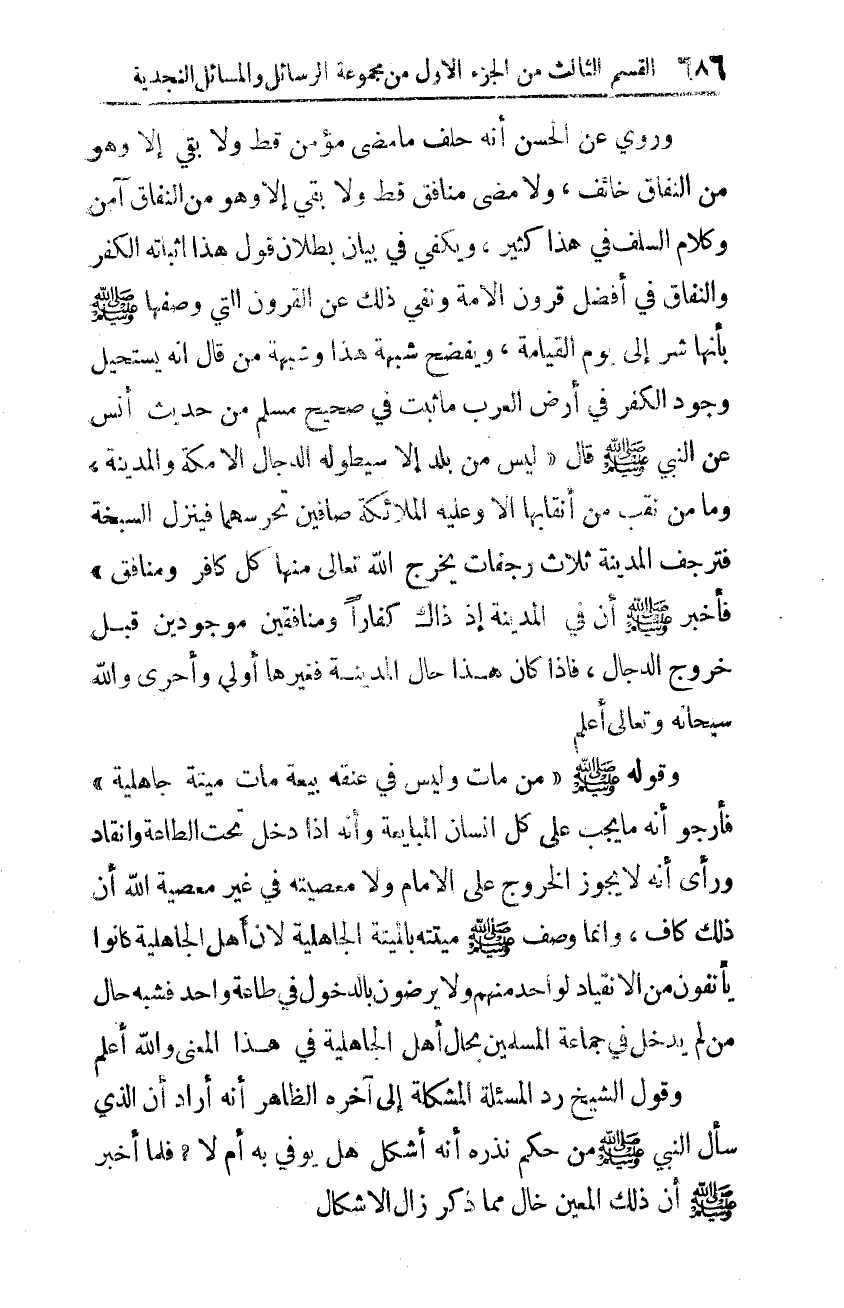 ٦٨٦ القسم الثالث من الجزء الاول من مجموعة الرسائل والمسائل النجدية
وروي عن الحسن أنه حلف مامضى مؤمن قط ولا بقي إلا وهو
من النفاق خائف ، ولا مضى منافق قط ولا بقي إلا وهو من النفاق آمن
وكلام السلف في هذا كثير ، ويكفي في بيان بطلان قول هذا اثباته الكفر
والنفاق في أفضل قرون الامة ونفي ذلك عن القرون التي وصفها ﷺ
بأنها شر إلى يوم القيامة ، ويفضح شبهة هذا وشبهة من قال انه يستحيل
وجود الكفر في أرض العرب ماثبت في صحيح مسلم من حديث أنس
عن النبي ﷺ قال « ليس من بلد إلا سيطوله الدجال الا مكة والمدينة ،
وما من نقب من أنقابها الا وعليه الملائكة صافين تحرسهما فينزل السبخة
فترجف المدينة ثلاث رجفات يخرج الله تعالى منها كل كافر ومنافق »
فأخبر ﷺ أن في المدينة إذ ذاك كفاراً ومنافقين موجودين قبل
خروج الدجال ، فاذا كان هذا حال المدينة فغيرها أولي وأحرى والله
سبحانه وتعالى أعلم
وقوله ﷺ « من مات وليس في عنقه بيعة مات ميتة جاهلية »
فأرجو أنه مايجب على كل انسان المبايعة وأنه اذا دخل تحت الطاعة وانقاد
ورأى أنه لا يجوز الخروج على الامام ولا معصيته في غير معصية الله أن
ذلك كاف ، وانما وصف ﷺ ميتته بالميتة الجاهلية لان أهل الجاهلية كانوا
يأنفون من الانقياد لواحد منهم ولا يرضون بالدخول في طاعة واحد فشبه حال
من لم يدخل في جماعة المسلمين بحال أهل الجاهلية في هذا المعنى والله أعلم
وقول الشيخ رد المسئلة المشكلة إلى آخره الظاهر أنه أراد أن الذي
سأل النبي ﷺ من حكم نذره أنه أشكل هل يوفي به أم لا ? فلما أخبر
ﷺ أن ذلك المعين خال مما ذكر زال الاشكال